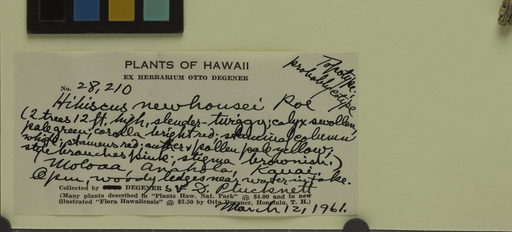 PLANTS OF HAWAII
EX HERBARIUM OTTO DEGENER
Topotype, probably isotype
No. 28,210
Hibiscus newhousei Roe
(2 trees 12 ft. high, slender-twiggy; calyx swollen,
pale green; corolla bright red; staminal column
white; stamens red; anthers & pollen pale yellow,
style branches pink; stigma brownish.)
Moloaa, Anahola, Kauai.
Open, woody ledges near water-intake.
Collected by DEGENER & D. Plucknett
(Many plants described in "Plants Haw. Nat. Park" @ $4.00 and in new
illustrated "Flora Hawaiiensis" @ $3.50 by Otto Degener, Honolulu, T. H.)
March 12, 1961.